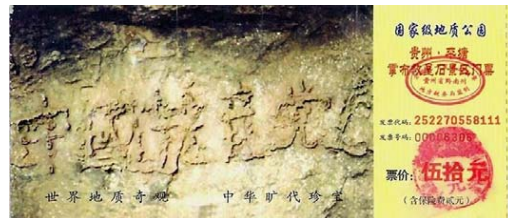 中國共産党亡
世界地质奇观 中华旷代珍宝
国家级地质公园
贵州·平塘
掌布救星石景区门票
发票代码: 252270558111
发票号码: 00006306
票价: 伍拾元
(含保险费贰元)